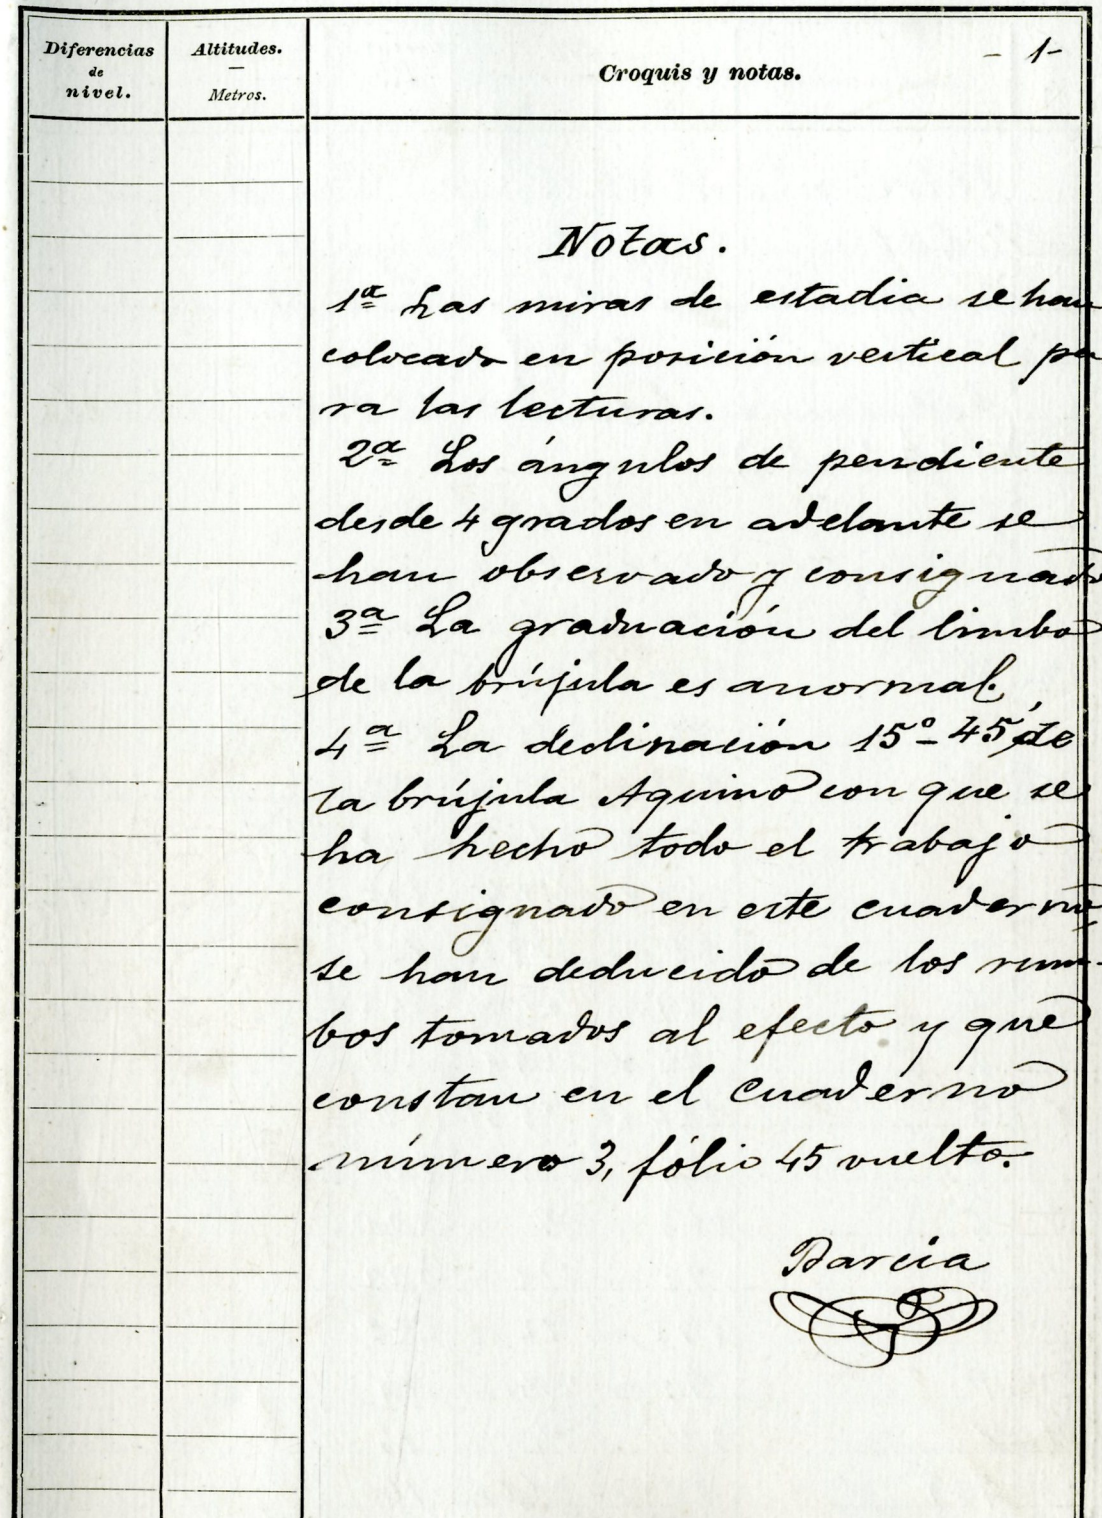 Diferencias
de
nivel.
Altitudes.
Metros.
Croquis y notas.
- 1-
Notas.
1ª Las miras de estadia se han
colocado en posición vertical pa
ra las lecturas.
2ª Los ángulos de pendiente
desde 4 grados en adelante se
han observado y consignado
3ª La graduación del limbo
de la brújula es anormal.
4ª La declinación 15º-45' de
la brújula Aquino con que se
ha hecho todo el trabajo
consignado en este cuaderno,
se han deducido de los rum-
bos tomados al efecto y que
constan en el cuaderno
número 3, fólio 45 vuelto.
Barcia